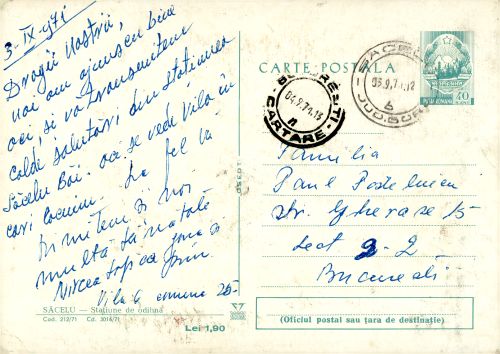 3-IX-1971
Dragii Noștrii,
noi am ajuns cu bine
aci, și vă transmitem
calde salutări din Stațiunea
Săcelu Băi. aci se vede Vila în
cari locuim. La fel vă
trimitem și noi
multă sănătate
Mircea Sofica Jana și
Vila 6 camera 25-
SĂCELU – Stațiune de odihnă
Cod. 212/71 Cd. 3016/71
Lei 1,90
OSEDPT
CARTE POȘTALĂ
BUCUREȘTI
04.9.71.13
CARTARE
SĂCELU
03.9.71.12
6
JUD. GORJ
POSTA ROMANA 40
Familia
Paul Postelnicu
str. Gherase 15
sect 2
București
(Oficiul poștal sau țara de destinație)